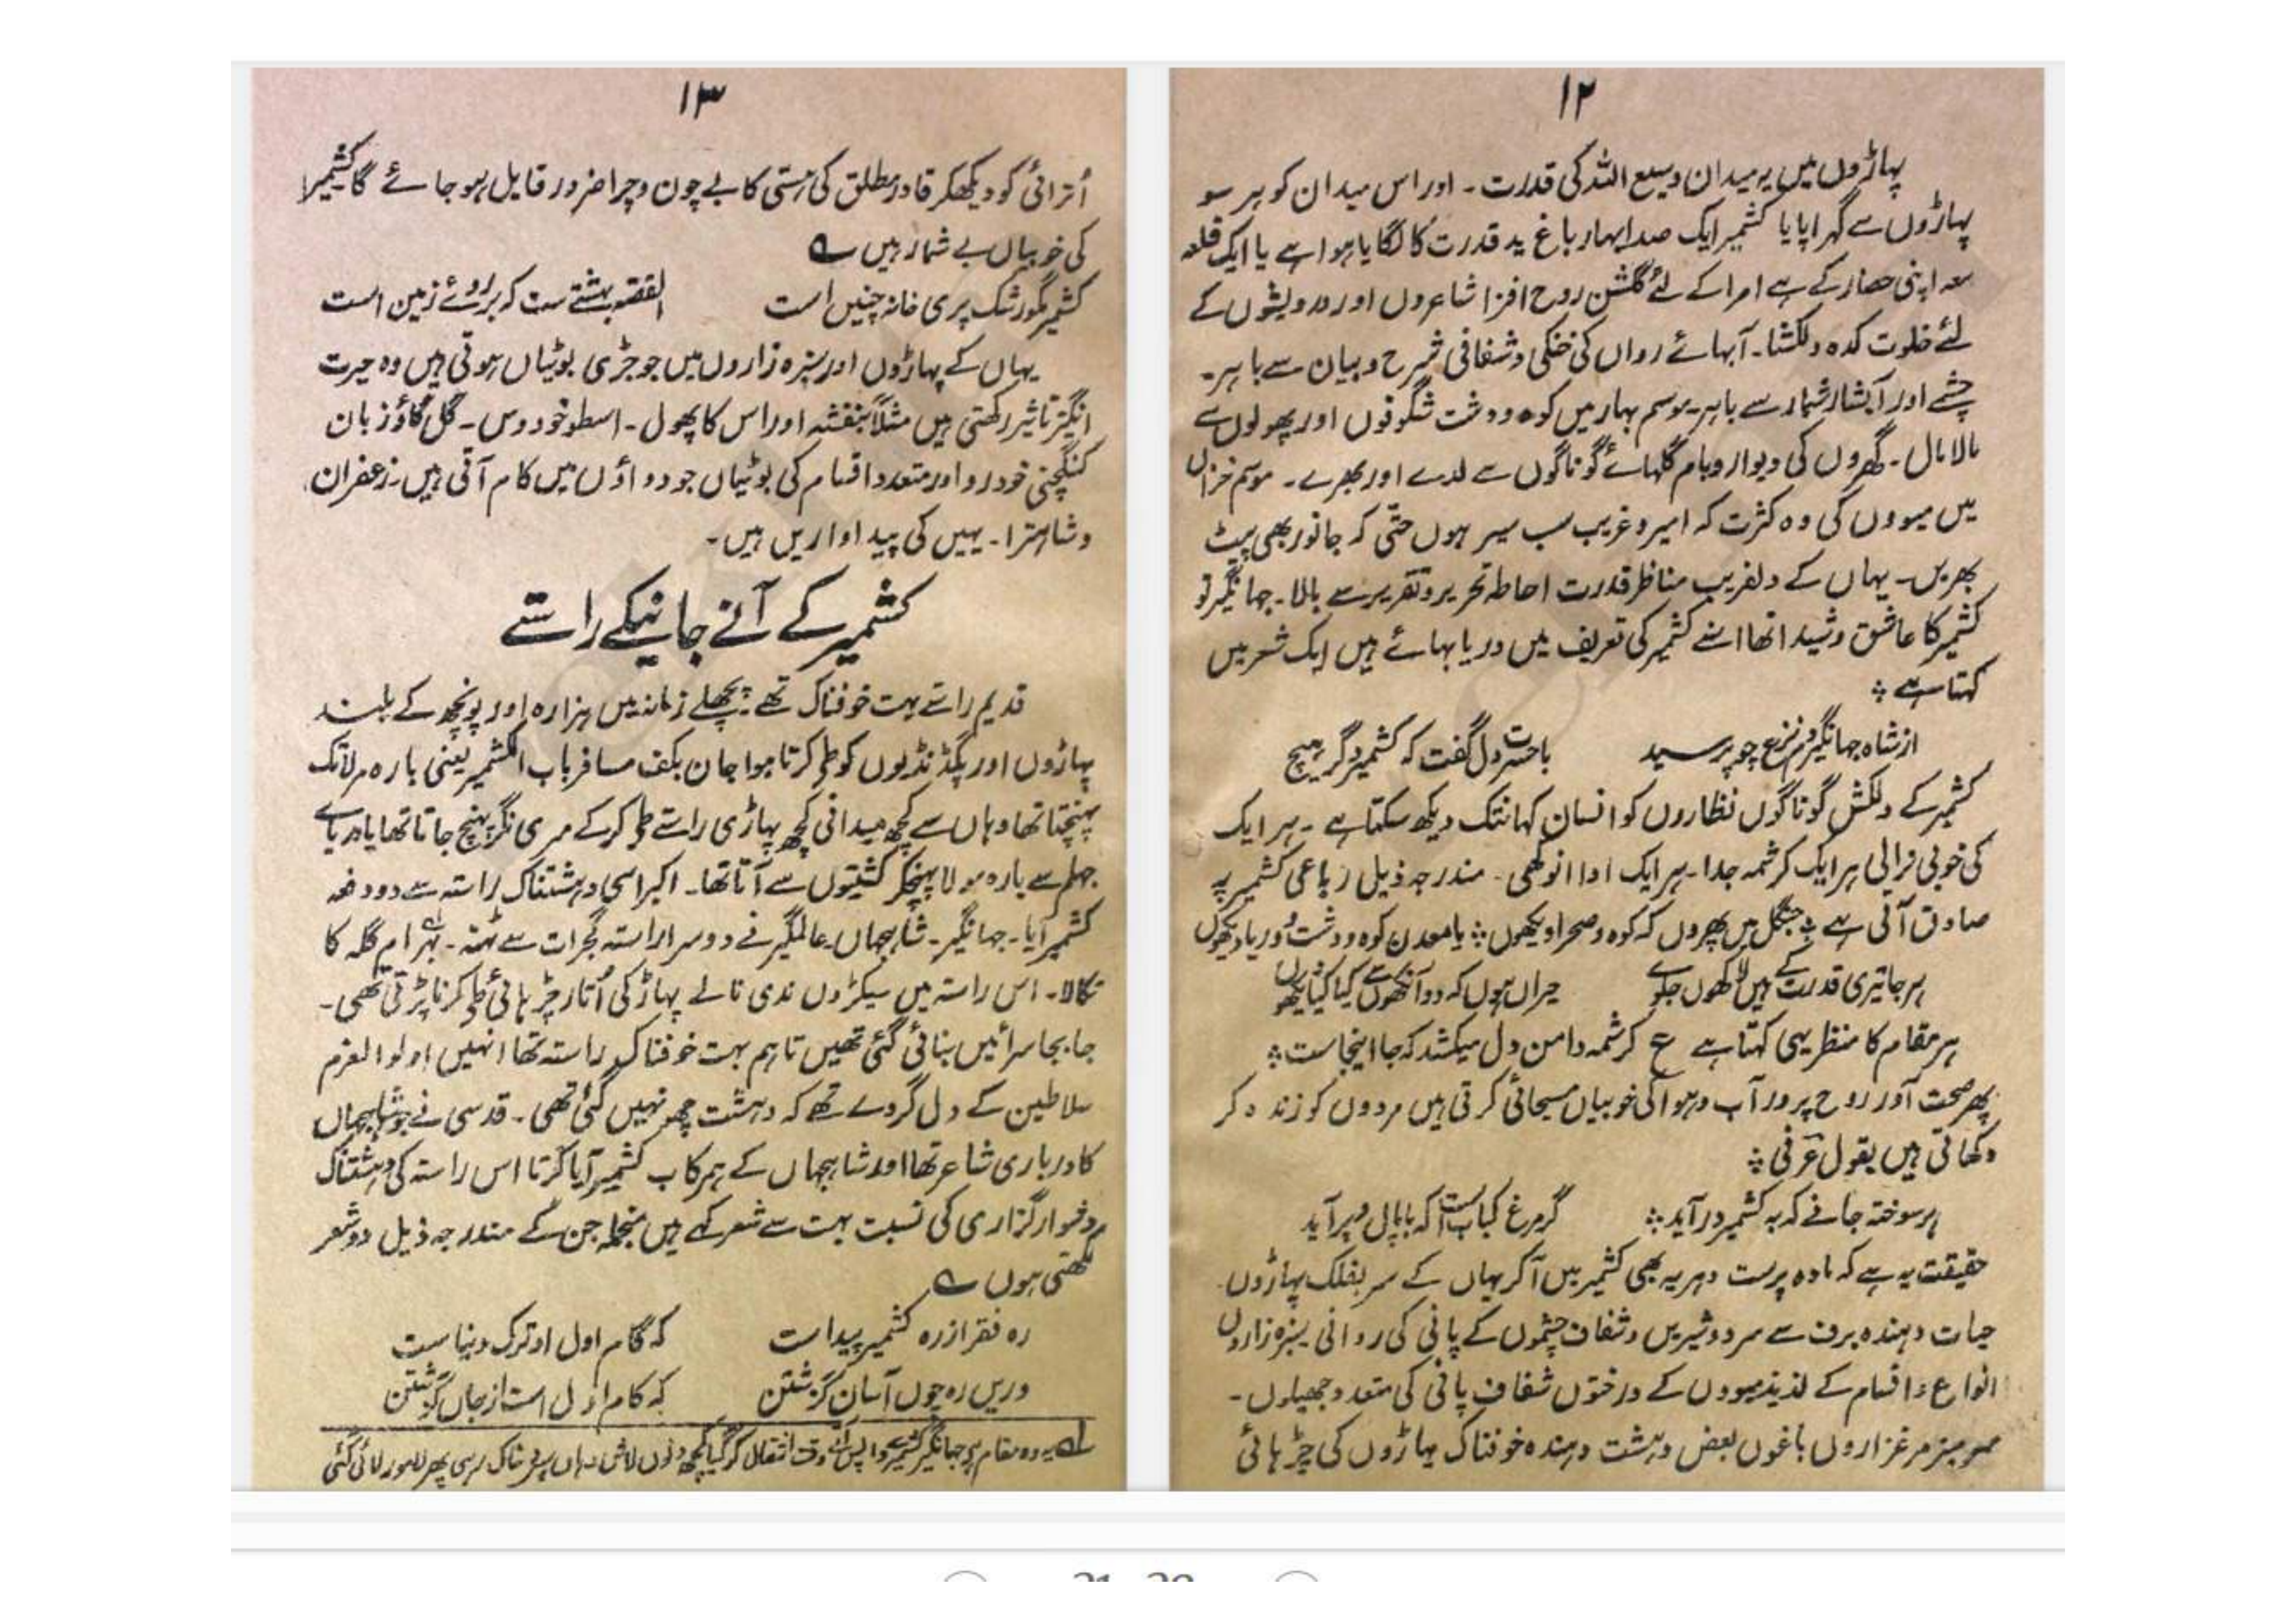 ۱۲
پہاڑوں میں یہ میدان وسیع اللہ کی قدرت۔ اور اس میدان کو ہر سو
پہاڑوں سے گہرا پایا کشمیر ایک صدا بہار باغ ید قدرت کا لگایا ہوا ہے یا ایک قلعہ
معہ اپنی حصار کے ہے امرا کے لئے گلشن روح افزا شاعروں اور درویشوں کے
لئے خلوت کدہ دلکشا۔ آبہائے رواں کی خنکی و شفافی شرح و بیان سے باہر۔
چشمے اور آبشار شمار سے باہر۔ موسم بہار میں کوہ و دشت شگوفوں اور پھولوں سے
مالا مال۔ گھروں کی دیوار و بام گلہائے گوناگوں سے لدے اور بھرے۔ موسم خزاں
میں میووں کی وہ کثرت کہ امیر و غریب سب سیر ہوں حتّٰی کہ جانور بھی پیٹ
بھریں۔ یہاں کے دلفریب مناظر قدرت احاطہ تحریر و تقریر سے بالا۔ جہانگیر تو
کشمیر کا عاشق و شیدا تھا اسنے کشمیر کی تعریف میں دریا بہائے ہیں ایک شعر میں
کہتا ہے ؞
از شاہ جہانگیر دم نزع چو پرسید باحسرت دل گفت کہ کشمیر دگر ہیچ
کشمیر کے دلکش گوناگوں نظاروں کو انسان کہانتک دیکھ سکتا ہے ۔ ہر ایک
کی خوبی نرالی ہر ایک کرشمہ جدا۔ ہر ایک ادا انوکھی۔ مندرجہ ذیل رباعی کشمیر پہ
صادق آتی ہے ؞ جنگل میں پھروں کہ کوہ و صحرا دیکھوں ؞ یا معدن کوہ و دشت و دریا دیکھوں
ہر جا تیری قدرت کے ہیں لاکھوں جلوے حیراں ہوں کہ دو آنکھوں سے کیا کیا دیکھوں
ہر مقام کا منظر یہی کہتا ہے ع کرشمہ دامن دل میکشد کہ جا اینجاست ؞
پھر صحت آور روح پرور آب و ہوا کی خوبیاں مسیحائی کرتی ہیں مردوں کو زندہ کر
دکھاتی ہیں بقول عرفی ؞
ہر سوختہ جانے کہ بہ کشمیر در آید ؞ گر مرغ کباب است کہ با بال و پر آید
حقیقت یہ ہے کہ مادہ پرست دہریہ بھی کشمیر میں آکر یہاں کے سر بفلک پہاڑوں
حیات دہندہ برف سے سرد و شیریں و شفاف چشموں کے پانی کی روانی۔ سبزہ زاروں
انواع و اقسام کے لذیذ میووں کے درختوں شفاف پانی کی متعدد جھیلوں۔
سرسبز مرغزاروں باغوں بعض دہشت دہندہ خوفناک پہاڑوں کی چڑہائی
۱۳
اُترائی کو دیکھکر قادر مطلق کی ہستی کا بے چون و چرا ضرور قایل ہو جائے گا کشمیر
کی خوبیاں بے شمار ہیں ؎
کشمیر مگو رشک پری خانہ چنیں است القصہ بہشتے ست کہ بر روئے زمین است
یہاں کے پہاڑوں اور سبزہ زاروں میں جو جڑی بوٹیاں ہوتی ہیں وہ حیرت
انگیز تاثیر رکھتی ہیں مثلاً بنفشہ اور اس کا پھول۔ اسطوخودوس۔ گل گاؤزبان
خودرو اور متعدد اقسام کی بوٹیاں جو دواؤں میں کام آتی ہیں۔ زعفران
و شاہترا۔ یہیں کی پیداواریں ہیں۔
کشمیر کے آنے جانیکے راستے
قدیم راستے بہت خوفناک تھے ؞ پچھلے زمانہ میں ہزارہ اور پونچھ کے بلند
پہاڑوں اور پگڈنڈیوں کو طے کرتا ہوا جان بکف مسافر باب الکشمیر یعنی بارہ مولا تک
پہنچتا تھا وہاں سے کچھ میدانی کچھ پہاڑی راستے طے کرکے سری نگر پہنچ جاتا تھا یا دریائے
جہلم سے بارہ مولا پہنچکر کشتیوں سے آتا تھا۔ اکبر اسی دہشتناک راستہ سے دو دفعہ
کشمیر آیا۔ جہانگیر۔ شاہجہاں عالمگیر نے دوسرا راستہ گجرات سے تھنہ۔ بہرام گلہ کا
نکالا۔ اس راستہ میں سیکڑوں ندی نالے پہاڑ کی اُتار چڑہائی طے کرنا پڑتی تھی۔
جا بجا سرائیں بنائی گئی تھیں تاہم بہت خوفناک راستہ تھا انہیں اولوالعزم
سلاطین کے دل گردے تھے کہ دہشت چھو نہیں گئی تھی۔ قدسی نے جو شاہجہاں
کا درباری شاعر تھا اور شاہجہاں کے ہمرکاب کشمیر آیا کرتا اس راستہ کی دہشتناک
دشوار گزاری کی نسبت بہت سے شعر کہے ہیں منجملہ جن کے مندرجہ ذیل دو شعر
لکھتی ہوں ؎
رہ فقر از رہ کشمیر پیداست کہ گام اول او ترک دنیاست
دریں رہ چوں آسان گزشتن کہ گام اول است از جاں گزشتن
لہ یہ وہ مقام ہے جہانگیر کشمیر سے واپس آتے وقت انتقال کر گیا کچھ دنوں لاش وہاں سپرد خاک رہی پھر لاہور لائی گئی